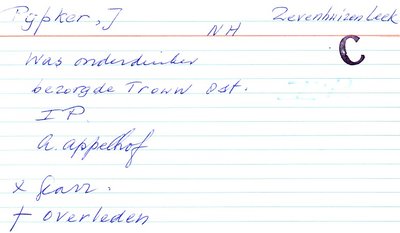 Pijpker, J NH Zevenhuizen Leek
C
Was onderduiker
bezorgde Trouw Ost.
I P.
A. Appelhof
x Gevr.
† overleden